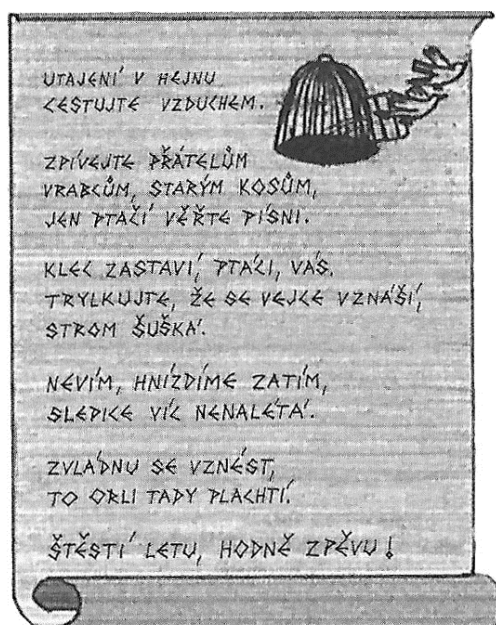 UTAJENÍ V HEJNU
CESTUJTE VZDUCHEM.
ZPÍVEJTE PŘÁTELŮM
VRABCŮM, STARÝM KOSŮM,
JEN PTAČÍ VĚŘTE PÍSNI.
KLEC ZASTAVÍ, PTÁCI, VÁS.
TRYLKUJTE, ŽE SE VEJCE VZNÁŠÍ,
STROM ŠUŠKÁ.
NEVÍM, HNÍZDÍME ZATÍM,
SLEPICE VÍC NENALÉTÁ.
ZVLÁDNU SE VZNÉST,
TO ORLI TADY PLACHTÍ.
ŠTĚSTÍ LETU, HODNĚ ZPĚVU!